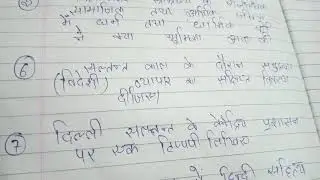 सामाजिक तथा आर्थिक
में धर्म तथा धार्मिक
ने क्या भूमिका अदा की
⑥ सल्तनत काल के दौरान
(विदेशी) व्यापार का संक्षिप्त विवरण
दीजिए।
⑦ दिल्ली सल्तनत के केंद्रीय प्रशासन
पर एक टिप्पणी लिखिए
में हिन्दी साहित्य